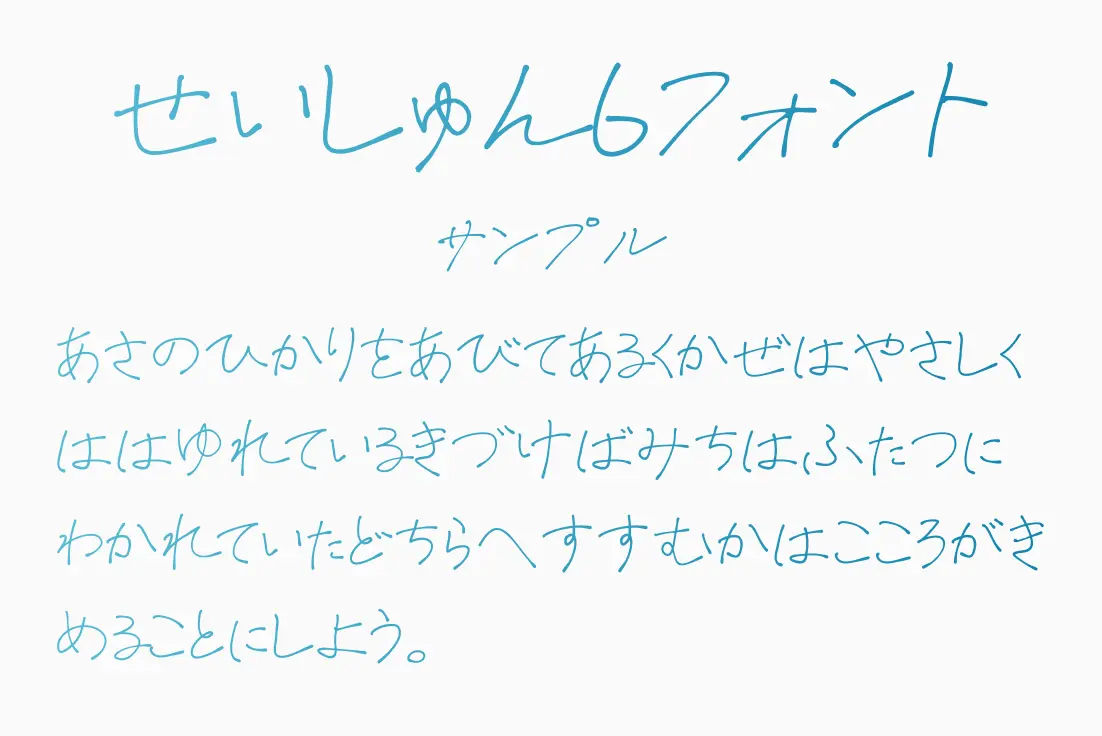 せいしゅん6フォント
サンプル
あさのひかりをあびてあるくかぜはやさしく
ははゆれているきづけばみちは、ふたつに
わかれていたどちらへすすむかはこころがき
めることにしよう。